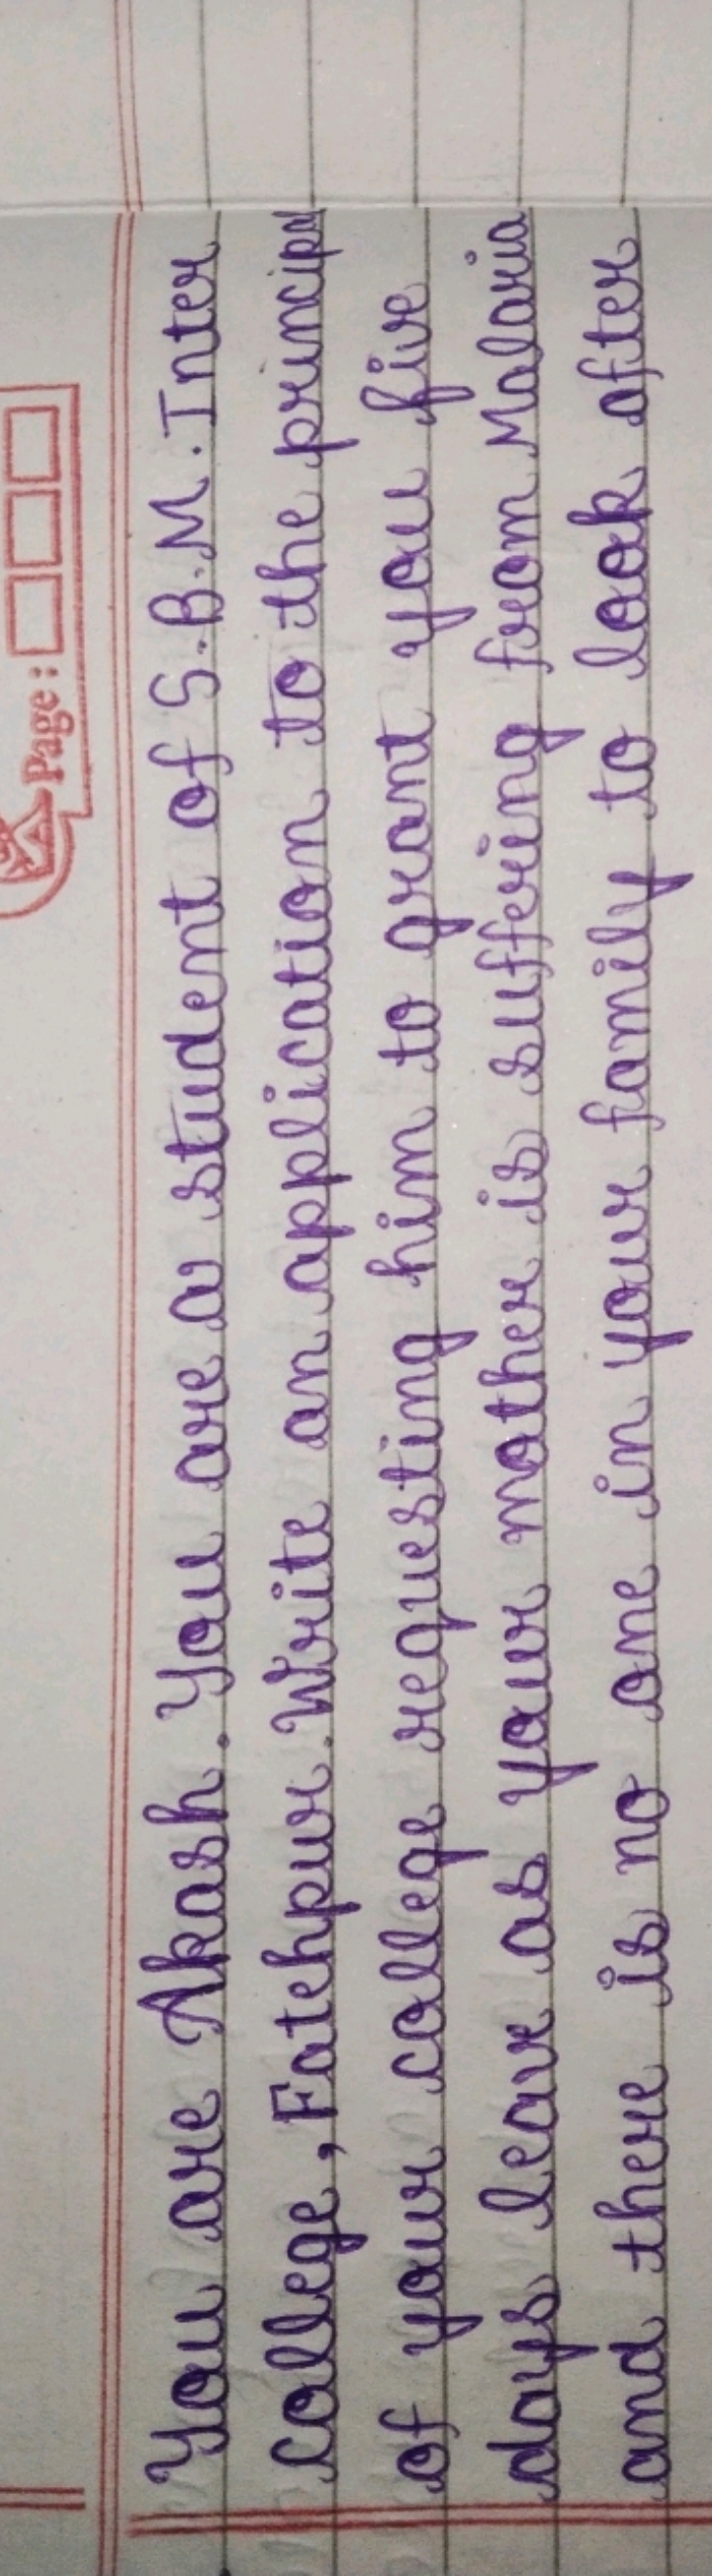 Page:
You are Akash. You are a student of S.B.M. Inter
college, Fatehpur. Write an application to the principal
of your college requesting him to grant you five
days leave as your mother is suffering from Malaria
and there is no one in your family to look after